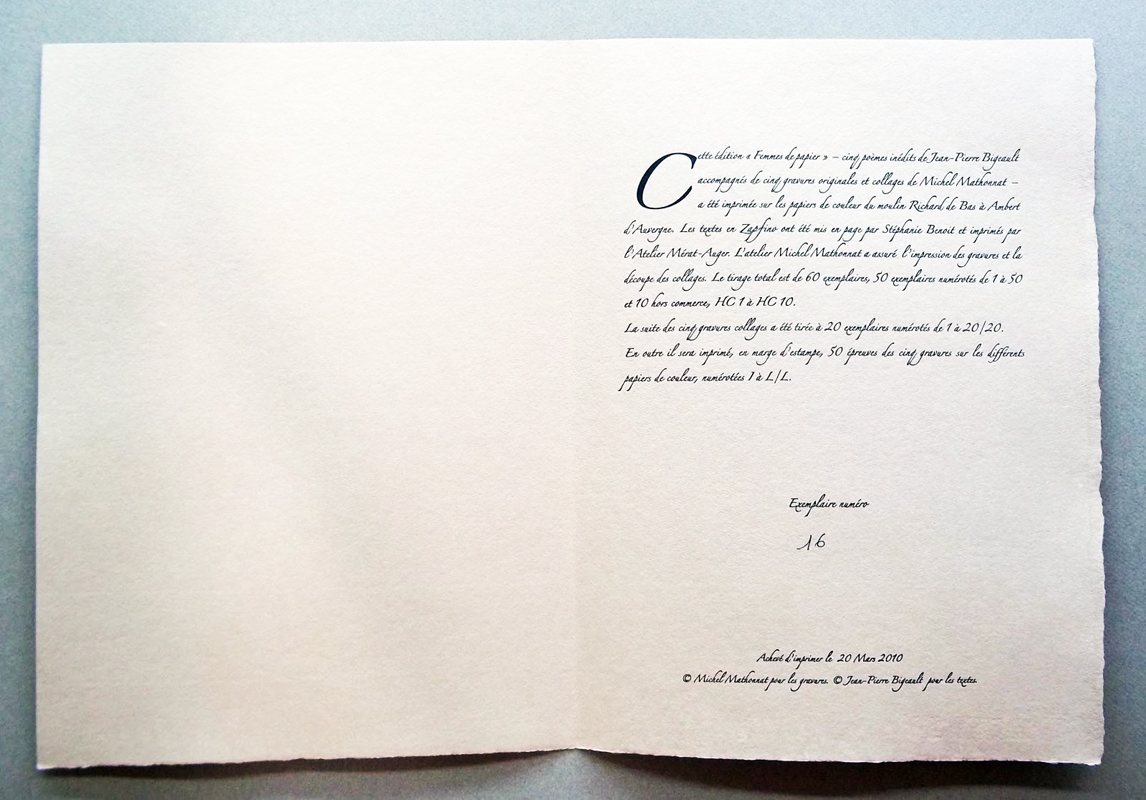 Cette édition « Femmes de papier » – cinq poèmes inédits de Jean-Pierre Bigeault
accompagnés de cinq gravures originales et collages de Michel Mathonnat –
a été imprimée sur les papiers de couleur du moulin Richard de Bas à Ambert
d'Auvergne. Les textes en Zapfino ont été mis en page par Stéphanie Benoit et imprimés par
l'Atelier Mérat-Auger. L'atelier Michel Mathonnat a assuré l'impression des gravures et la
découpe des collages. Le tirage total est de 60 exemplaires, 50 exemplaires numérotés de 1 à 50
et 10 hors commerce, HC 1 à HC 10.
La suite des cinq gravures collages a été tirée à 20 exemplaires numérotés de 1 à 20/20.
En outre il sera imprimé, en marge d'estampe, 50 épreuves des cinq gravures sur les différents
papiers de couleur, numérotées I à L/L.
Exemplaire numéro
16
Achevé d'imprimer le 20 Mars 2010
© Michel Mathonnat pour les gravures. © Jean-Pierre Bigeault pour les textes.